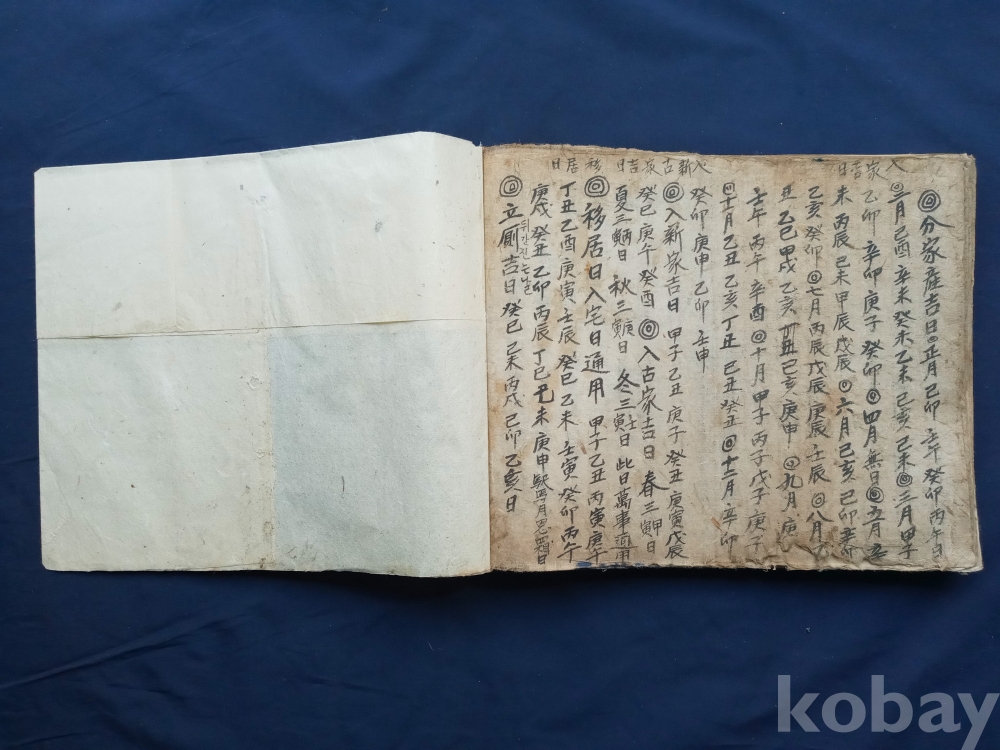 入家吉日
入新古家吉日
移居日
◎分家産吉日◎正月己卯 壬午癸卯丙午日
◎二月己酉 辛未癸未乙未己亥己未◎三月甲子
乙卯 辛卯庚子癸卯◎四月無日◎五月辛
未丙辰己未甲辰戊辰◎六月己亥己卯辛卯
乙亥癸卯◎七月丙辰戊辰庚辰壬辰◎八月丁
丑乙巳甲戌乙亥 丁丑己亥庚申◎九月庚
壬午丙午辛酉◎十月甲子丙子戊子庚子
◎十一月乙丑乙亥丁丑 己丑癸丑◎十二月辛卯
癸卯庚申乙卯壬申
◎入新家吉日 甲子乙丑庚子癸丑庚寅戊辰
癸巳庚午癸酉 ◎入古家吉日 春三甲寅日
夏三丙寅日 秋三庚寅日 冬三壬寅日 此日萬事通用
◎移居日入宅日通用 甲子乙丑丙寅庚午
丁丑乙酉庚寅壬辰癸巳乙未 壬寅癸卯丙午
庚戌癸丑乙卯丙辰丁巳己未庚申
뒤간짓는날
◎立厠吉日 癸巳 己未 丙戌 己卯 乙亥日